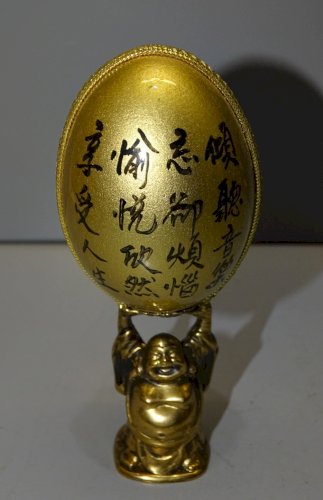 傾聽音樂
忘卻煩惱
愉悅欣然
享受人生